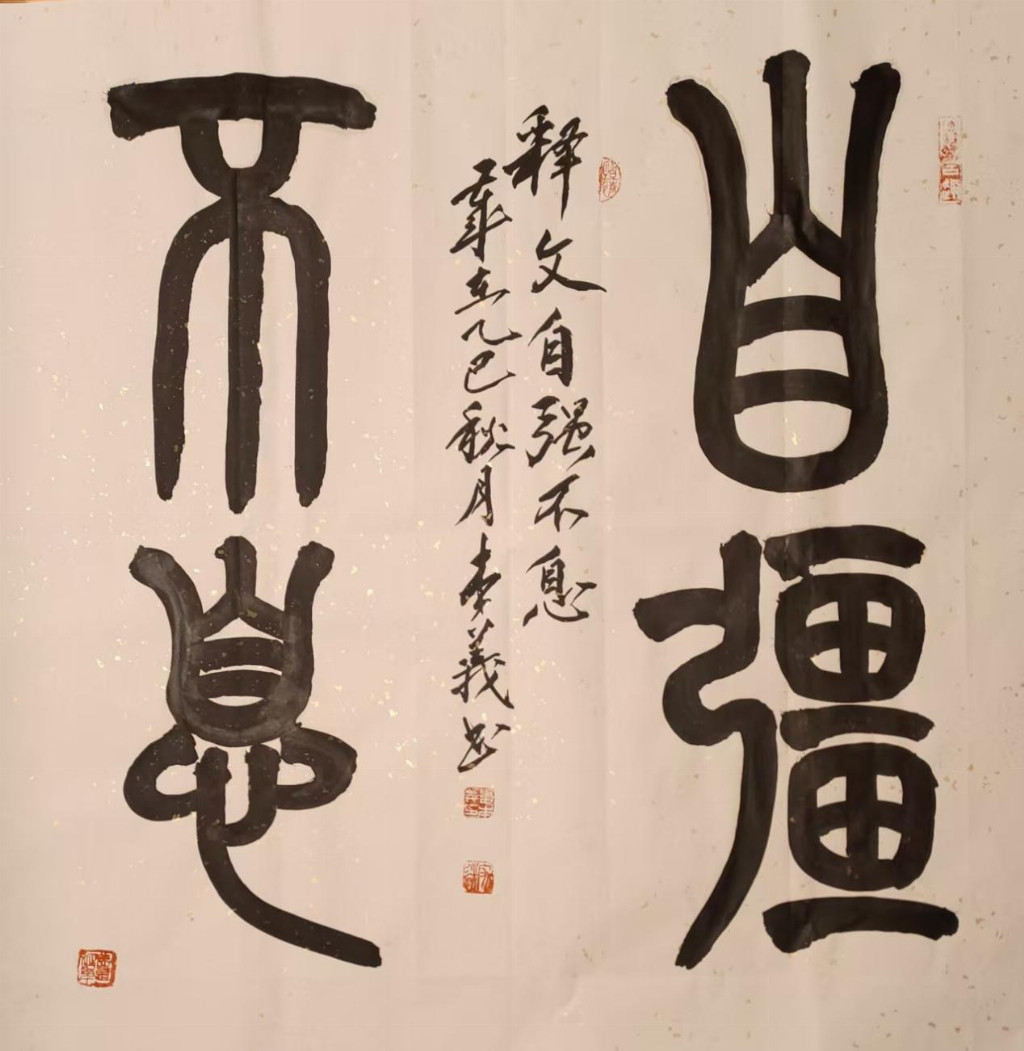 自彊
释文自强不息
歲在乙巳秋月李義书
不息